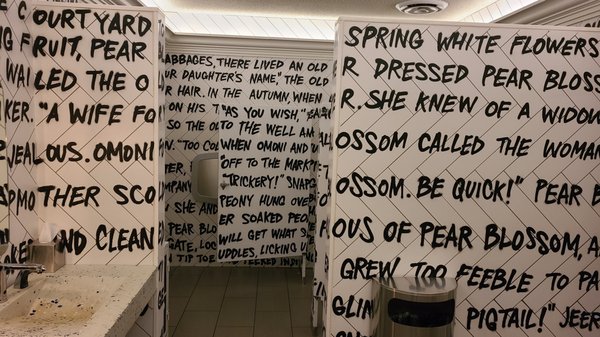 COURTYARD
FRUIT, PEAR
LED THE O
"A WIFE FO
JEALOUS. OMONI
THER SCO
ND CLEAN
ABBAGES, THERE LIVED AN OLD
UR DAUGHTER'S NAME," THE OLD
R HAIR. IN THE AUTUMN, WHEN
ON HIS
SO THE O
"TOO CO
SHE AND
GATE,
TIP TOE
"AS YOU WISH,"
TO THE WELL AN
WHEN OMONI AND
OFF TO THE MARK
"TRICKERY!" SNAP
PEONY HUNG OVER
ER SOAKED PEO
WILL GET WHAT S
UDDLES, LICKING
SPRING WHITE FLOWERS
R DRESSED PEAR BLOSS
R. SHE KNEW OF A WIDOW
OSSOM CALLED THE WOMAN
OSSOM. BE QUICK!" PEAR B
OUS OF PEAR BLOSSOM, A
GREW TOO FEEBLE TO PA
GLIN
PIGTAIL!" JEER